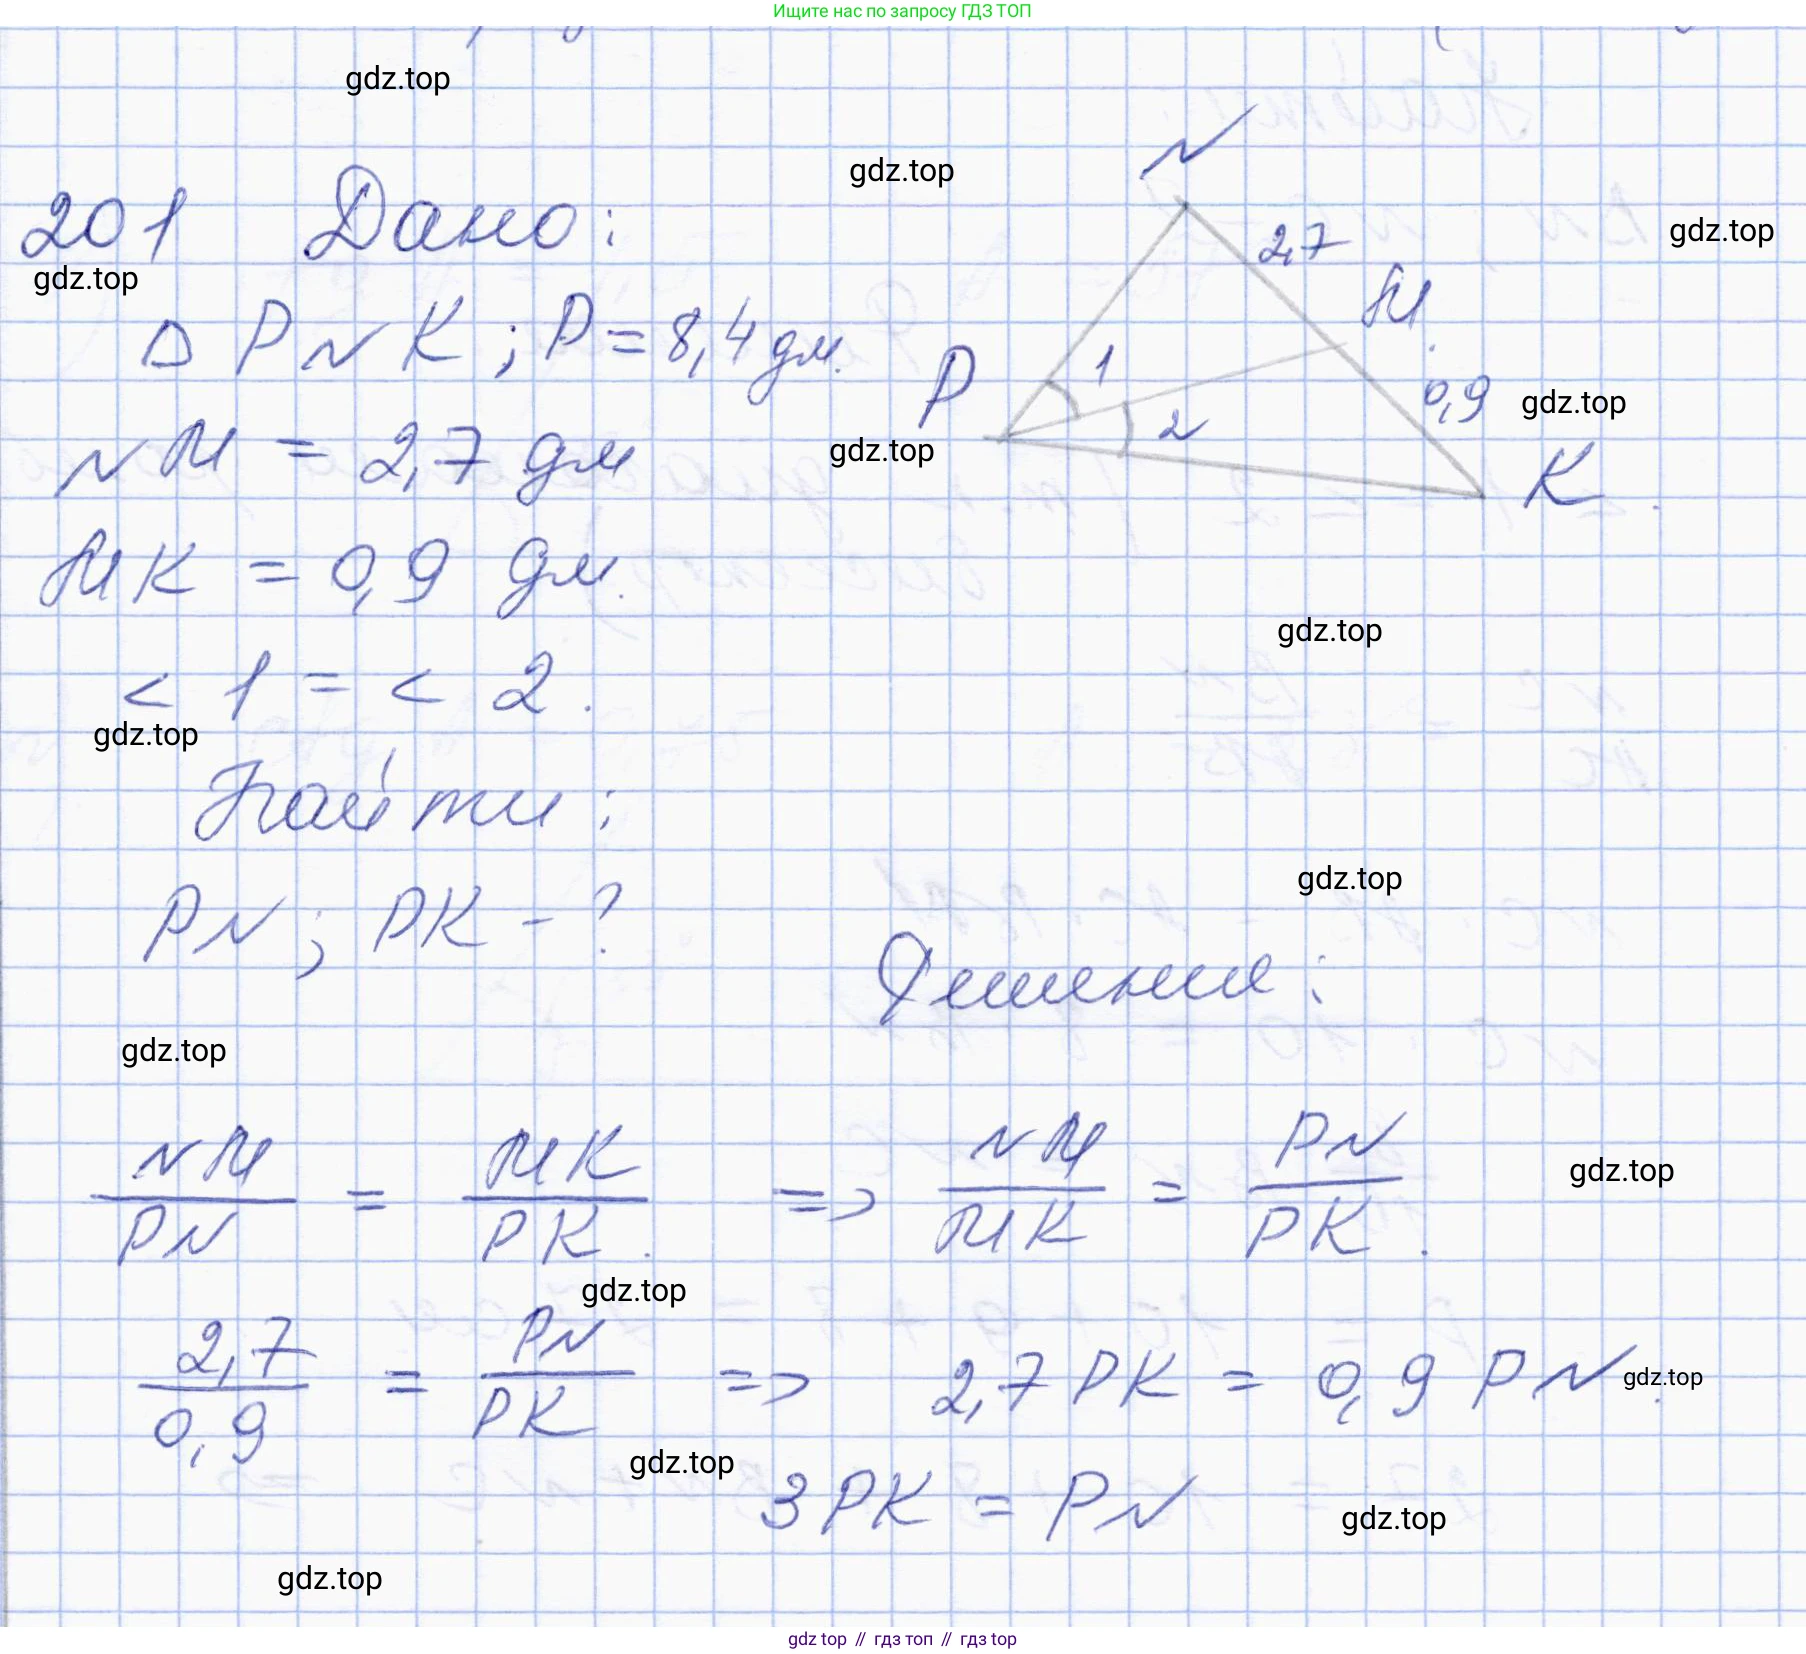 Ищите нас по запросу ГДЗ ТОП
gdz.top
gdz.top
N
201 Дано:
2,7
gdz.top
gdz.top
M
△ PNK; P = 8,4 дм.
P
1
0,9
gdz.top
2
gdz.top
NM = 2,7 дм
K.
MK = 0,9 дм.
gdz.top
< 1 = < 2.
gdz.top
Найти:
gdz.top
PN; PK - ?
Решение:
gdz.top
NM/PN = MK/PK. => NM/MK = PN/PK.
gdz.top
gdz.top
2,7/0,9 = PN/PK => 2,7 PK = 0,9 PN.
gdz.top
gdz.top
3 PK = PN
gdz.top
gdz.top
gdz top // гдз топ // гдз top